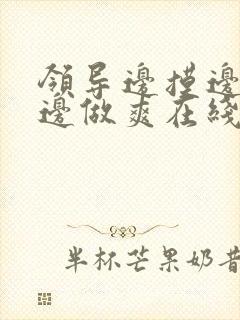 領导邊摸邊
邊做爽在綫
半杯芒果奶昔